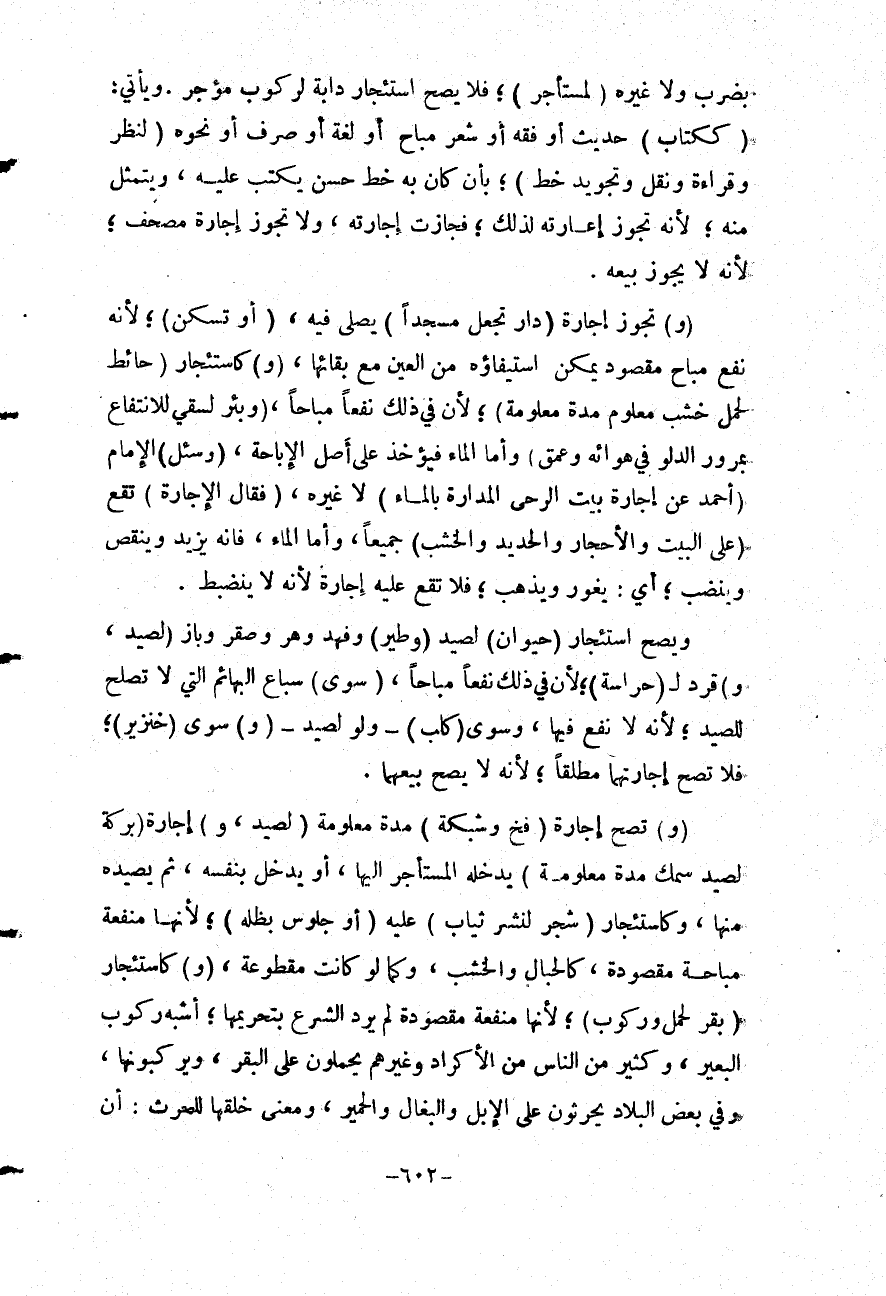 بضرب ولا غيره ( لمستأجر ) ؛ فلا يصح استئجار دابة لركوب مؤجر . ويأتي :
( ككتاب ) حديث أو فقه أو شعر مباح أو لغة أو صرف أو نحوه ( لنظر
وقراءة ونقل وتجويد خط ) ؛ بأن كان به خط حسن يكتب عليه ، ويتمثل
منه ؛ لأنه تجوز إعارته لذلك ؛ فجازت إجارته ، ولا تجوز إجارة مصحف ؛
لأنه لا يجوز بيعه .
(و) تجوز إجارة (دار تجعل مسجداً ) يصلى فيه ، ( أو تسكن) ؛ لأنه
نفع مباح مقصود يمكن استيفاؤه من العين مع بقائها ، (و) كاستئجار ( حائط
لحمل خشب معلوم مدة معلومة) ؛ لأن في ذلك نفعاً مباحاً ، (وبئر لسقي للانتفاع
بمرور الدلو في هوائه وعمق) وأما الماء فيؤخذ على أصل الإباحة ، (وسئل) الإمام
(أحمد عن إجارة بيت الرحى المدارة بالماء ) لا غيره ، ( فقال الإجارة ) تقع
(على البيت والأحجار والحديد والخشب) جميعاً ، وأما الماء ، فانه يزيد وينقص
وينضب ؛ أي : يغور ويذهب ؛ فلا تقع عليه إجارة لأنه لا ينضبط .
ويصح استئجار (حيوان) لصيد (وطير) وفهد وهر وصقر وباز (لصيد ،
و) قرد لـ (حراسة) ؛ لأن في ذلك نفعاً مباحاً ، ( سوى ) سباع البهائم التي لا تصلح
للصيد ؛ لأنه لا نفع فيها ، وسوى (كلب ) – ولو لصيد – ( و) سوى (خنزير) ؛
فلا تصح إجارتهما مطلقاً ؛ لأنه لا يصح بيعهما .
(و) تصح إجارة ( فخ وشبكة ) مدة معلومة ( لصيد ، و ) إجارة (بركة
لصيد سمك مدة معلومة ) يدخله المستأجر اليها ، أو يدخل بنفسه ، ثم يصيده
منها ، وكاستئجار ( شجر لنشر ثياب ) عليه ( أو جلوس بظله ) ؛ لأنها منفعة
مباحة مقصودة ، كالحبال والخشب ، وكما لو كانت مقطوعة ، (و) كاستئجار
( بقر لحمل وركوب) ؛ لأنها منفعة مقصودة لم يرد الشرع بتحريمها ؛ أشبه ركوب
البعير ، وكثير من الناس من الأكراد وغيرهم يحملون على البقر ، ويركبونها ،
وفي بعض البلاد يحرثون على الإبل والبغال والحمير ، ومعنى خلقها للحرث : أن
–٦٠٢–